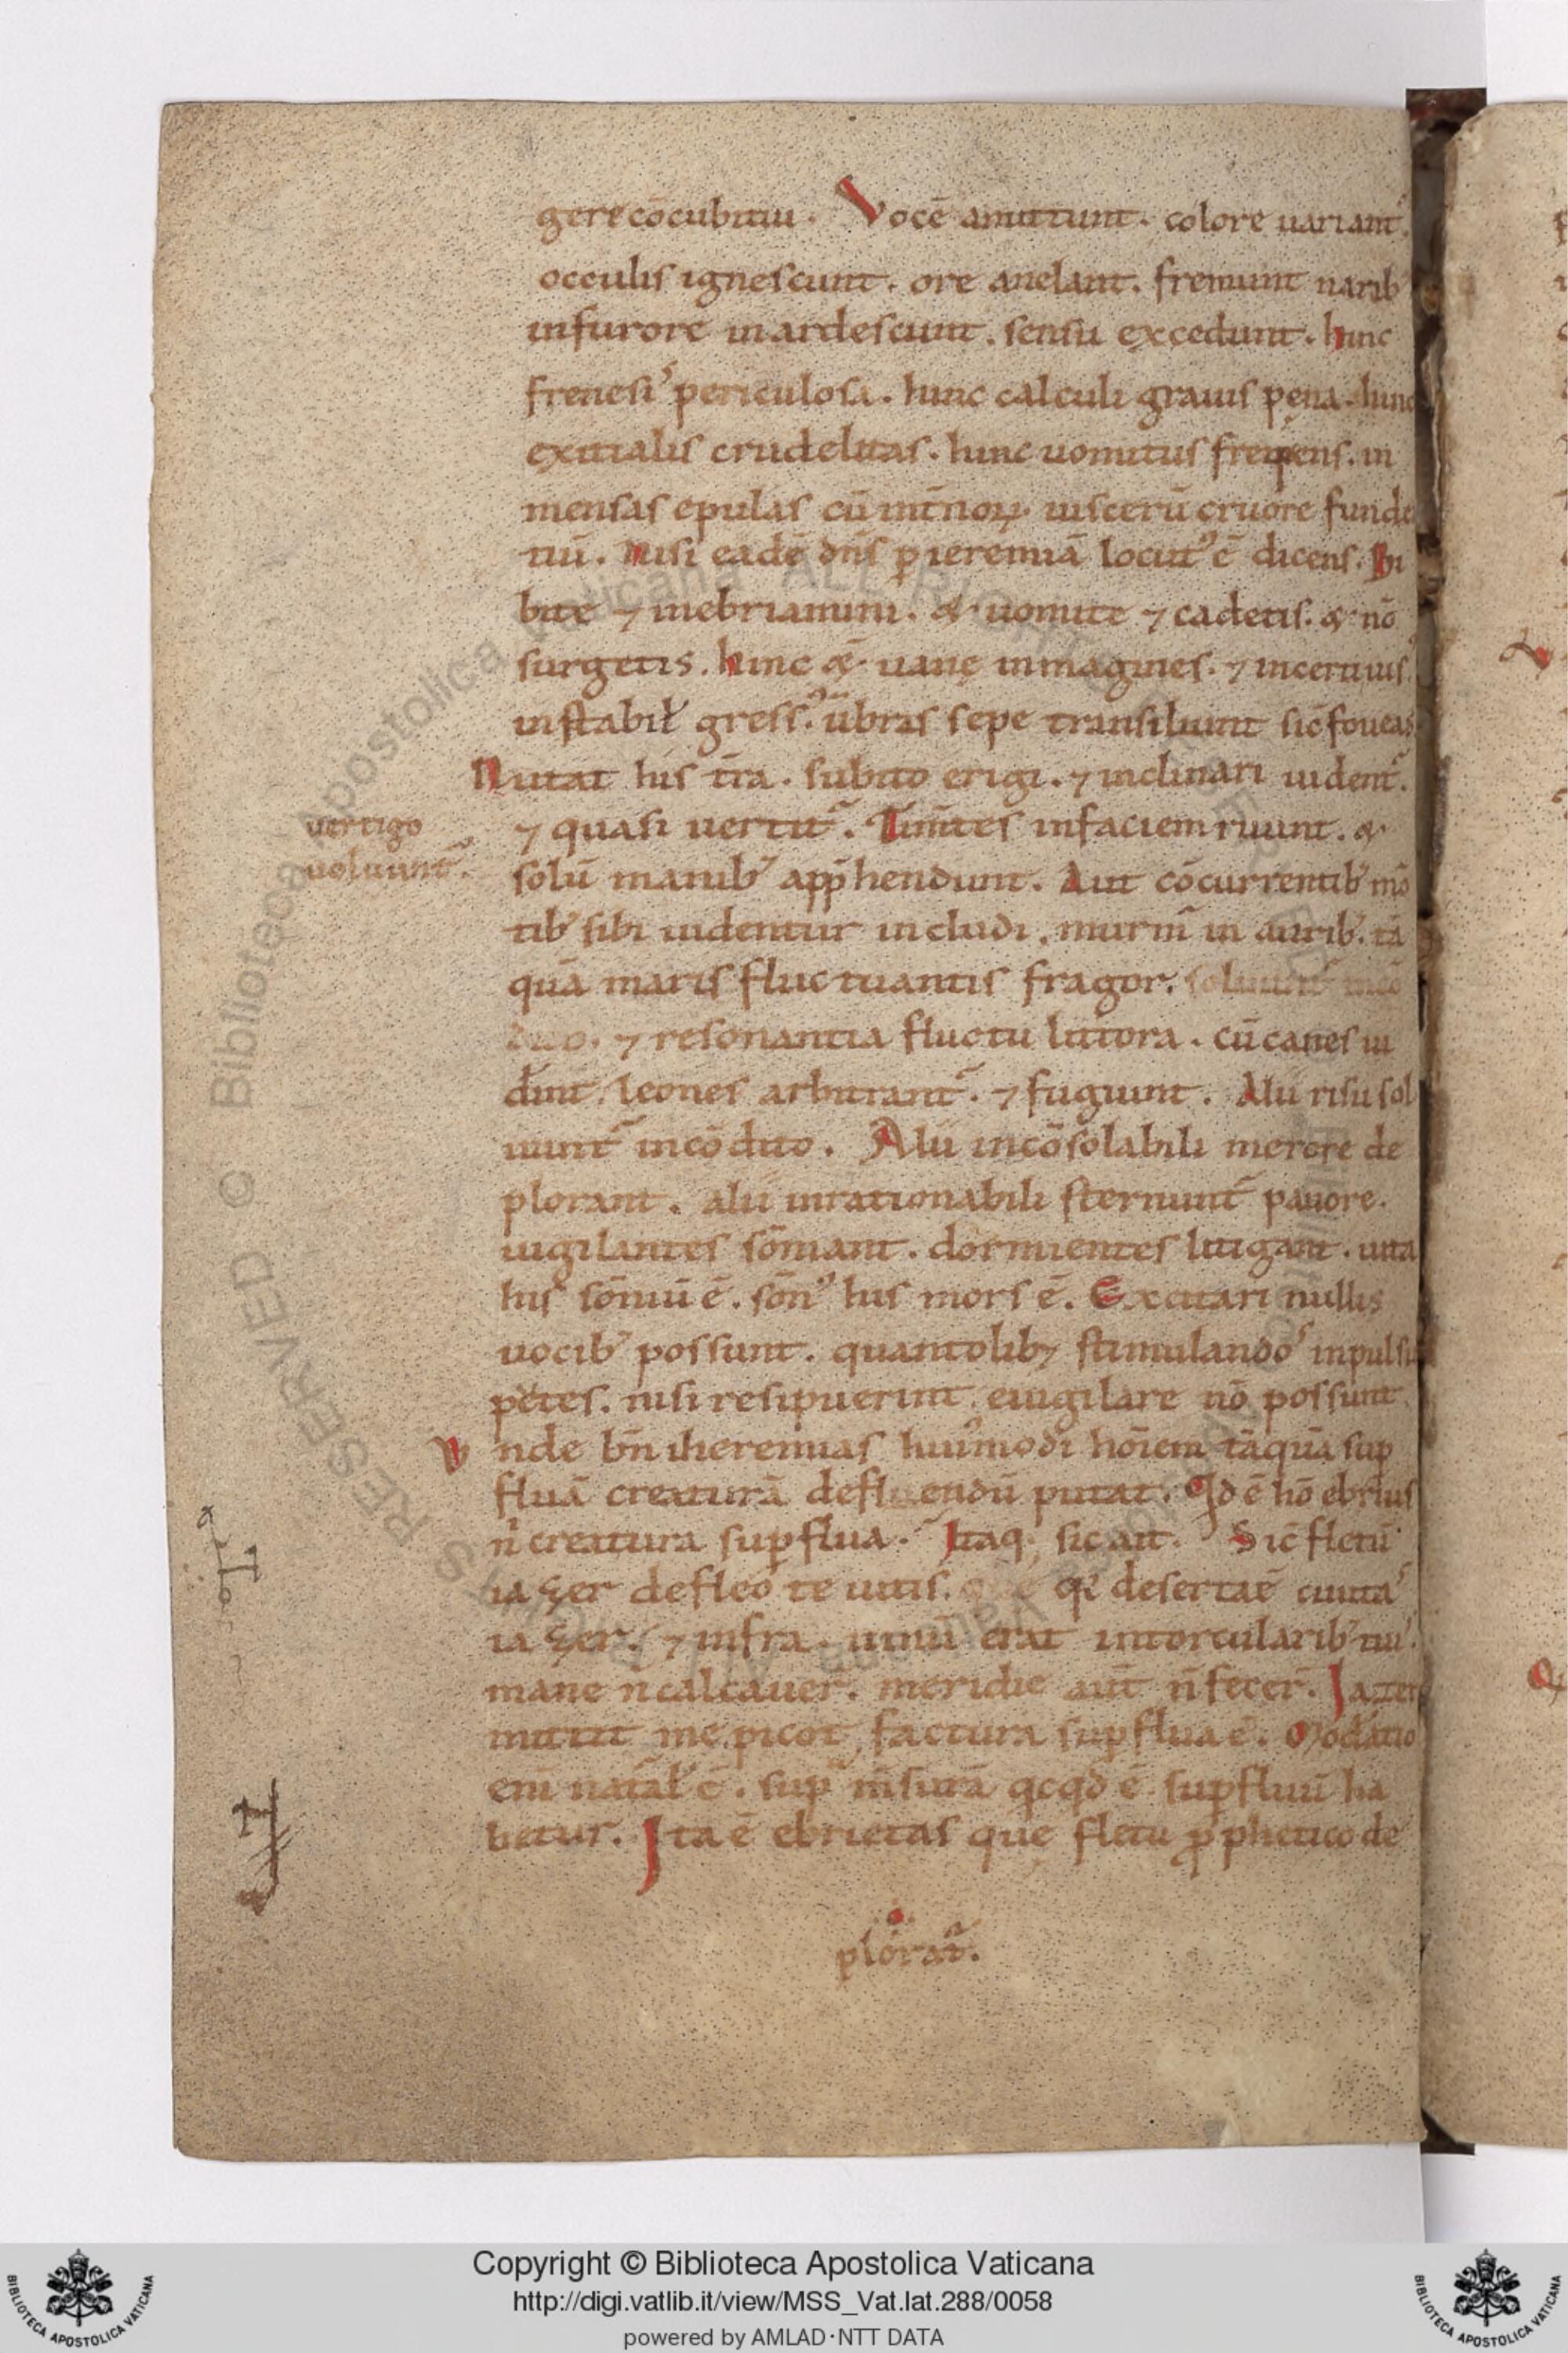 gere cōcubituu. Vocē amittunt. colore uariant᷑.
occulis ignescunt. ore anelant. fremunt narib᷒
infurore inardescunt. sensu excedunt. hinc
frenesi᷒ periculosa. hinc calculi grauis pęna. hinc
exitialis crudelitas. hinc uomitus frequens. in
mensas epulas cū int̄noꝝ uiscerū cruore funde
tiū. nisi eadē dn̄s ꝑ ieremiā locut᷒ ē dicens. Bi
bite ⁊ inebriamini. & uomite ⁊ cadetis. & nō
surgetis. hinc &̄ uanę inmagines. ⁊ incerti uis᷒.
instabił gress᷒. ūbras sepe transiliunt sic̄ foueas
Nutat his t̄ra. subito erigi. ⁊ inclinari uident᷑.
vertigo
uoluunt᷑.
⁊ quasi uertit᷑. Tim̄tes infaciem ruunt. &
solū manib᷒ app̄hendunt. Aut cōcurrentib᷒ mō
tib᷒ sibi uidentur includi. murm̄ in aurib᷒. tā
quā maris fluctuantis fragor.
⁊ resonantia fluctu littora. cū canes ui
đint. leones arbitrant᷑. ⁊ fugiunt. Alii risu sol
uunt᷑ incōdito. Alii incōsolabili merore de
plorant. alii inrationabili sternunt᷑ pauore.
uigilantes sōmant. dormientes litigant. uita
his sōniū ē. sōn᷒ his mors ē. Excitari nullis
uocib᷒ possunt. quantolibꝫ stimulando᷒ inpulsu
petes. nisi resipuerint euigilare nō possunt
Vnde bn̄ iheremias hui᷒modi hōiem tāquā sup
fluā creaturā defluendū putat. Qd ē hō ebrius
n̄ creatura suꝑflua. Itaq; sic ait. Sic̄ fletū
iazer defleo te uitis. q᷒ desertaē ciuita᷒
iazer. ⁊ infra. uinū erat intorcularib᷒ tui᷒.
mane n̄ calcauer̄. meridie aūt n̄ fecer̄. Jazer
mittit me picot, factura suꝑflua ē. Moderatio
eni᷒ nat᷑al᷒ ē. sup᷑ m̄surā qcqd ē suꝑfluū ha
betur. Ita ē ebrietas quę fletu ꝓphetico de
plorat᷑.
Copyright © Biblioteca Apostolica Vaticana
http://digi.vatlib.it/view/MSS_Vat.lat.288/0058
powered by AMLAD·NTT DATA